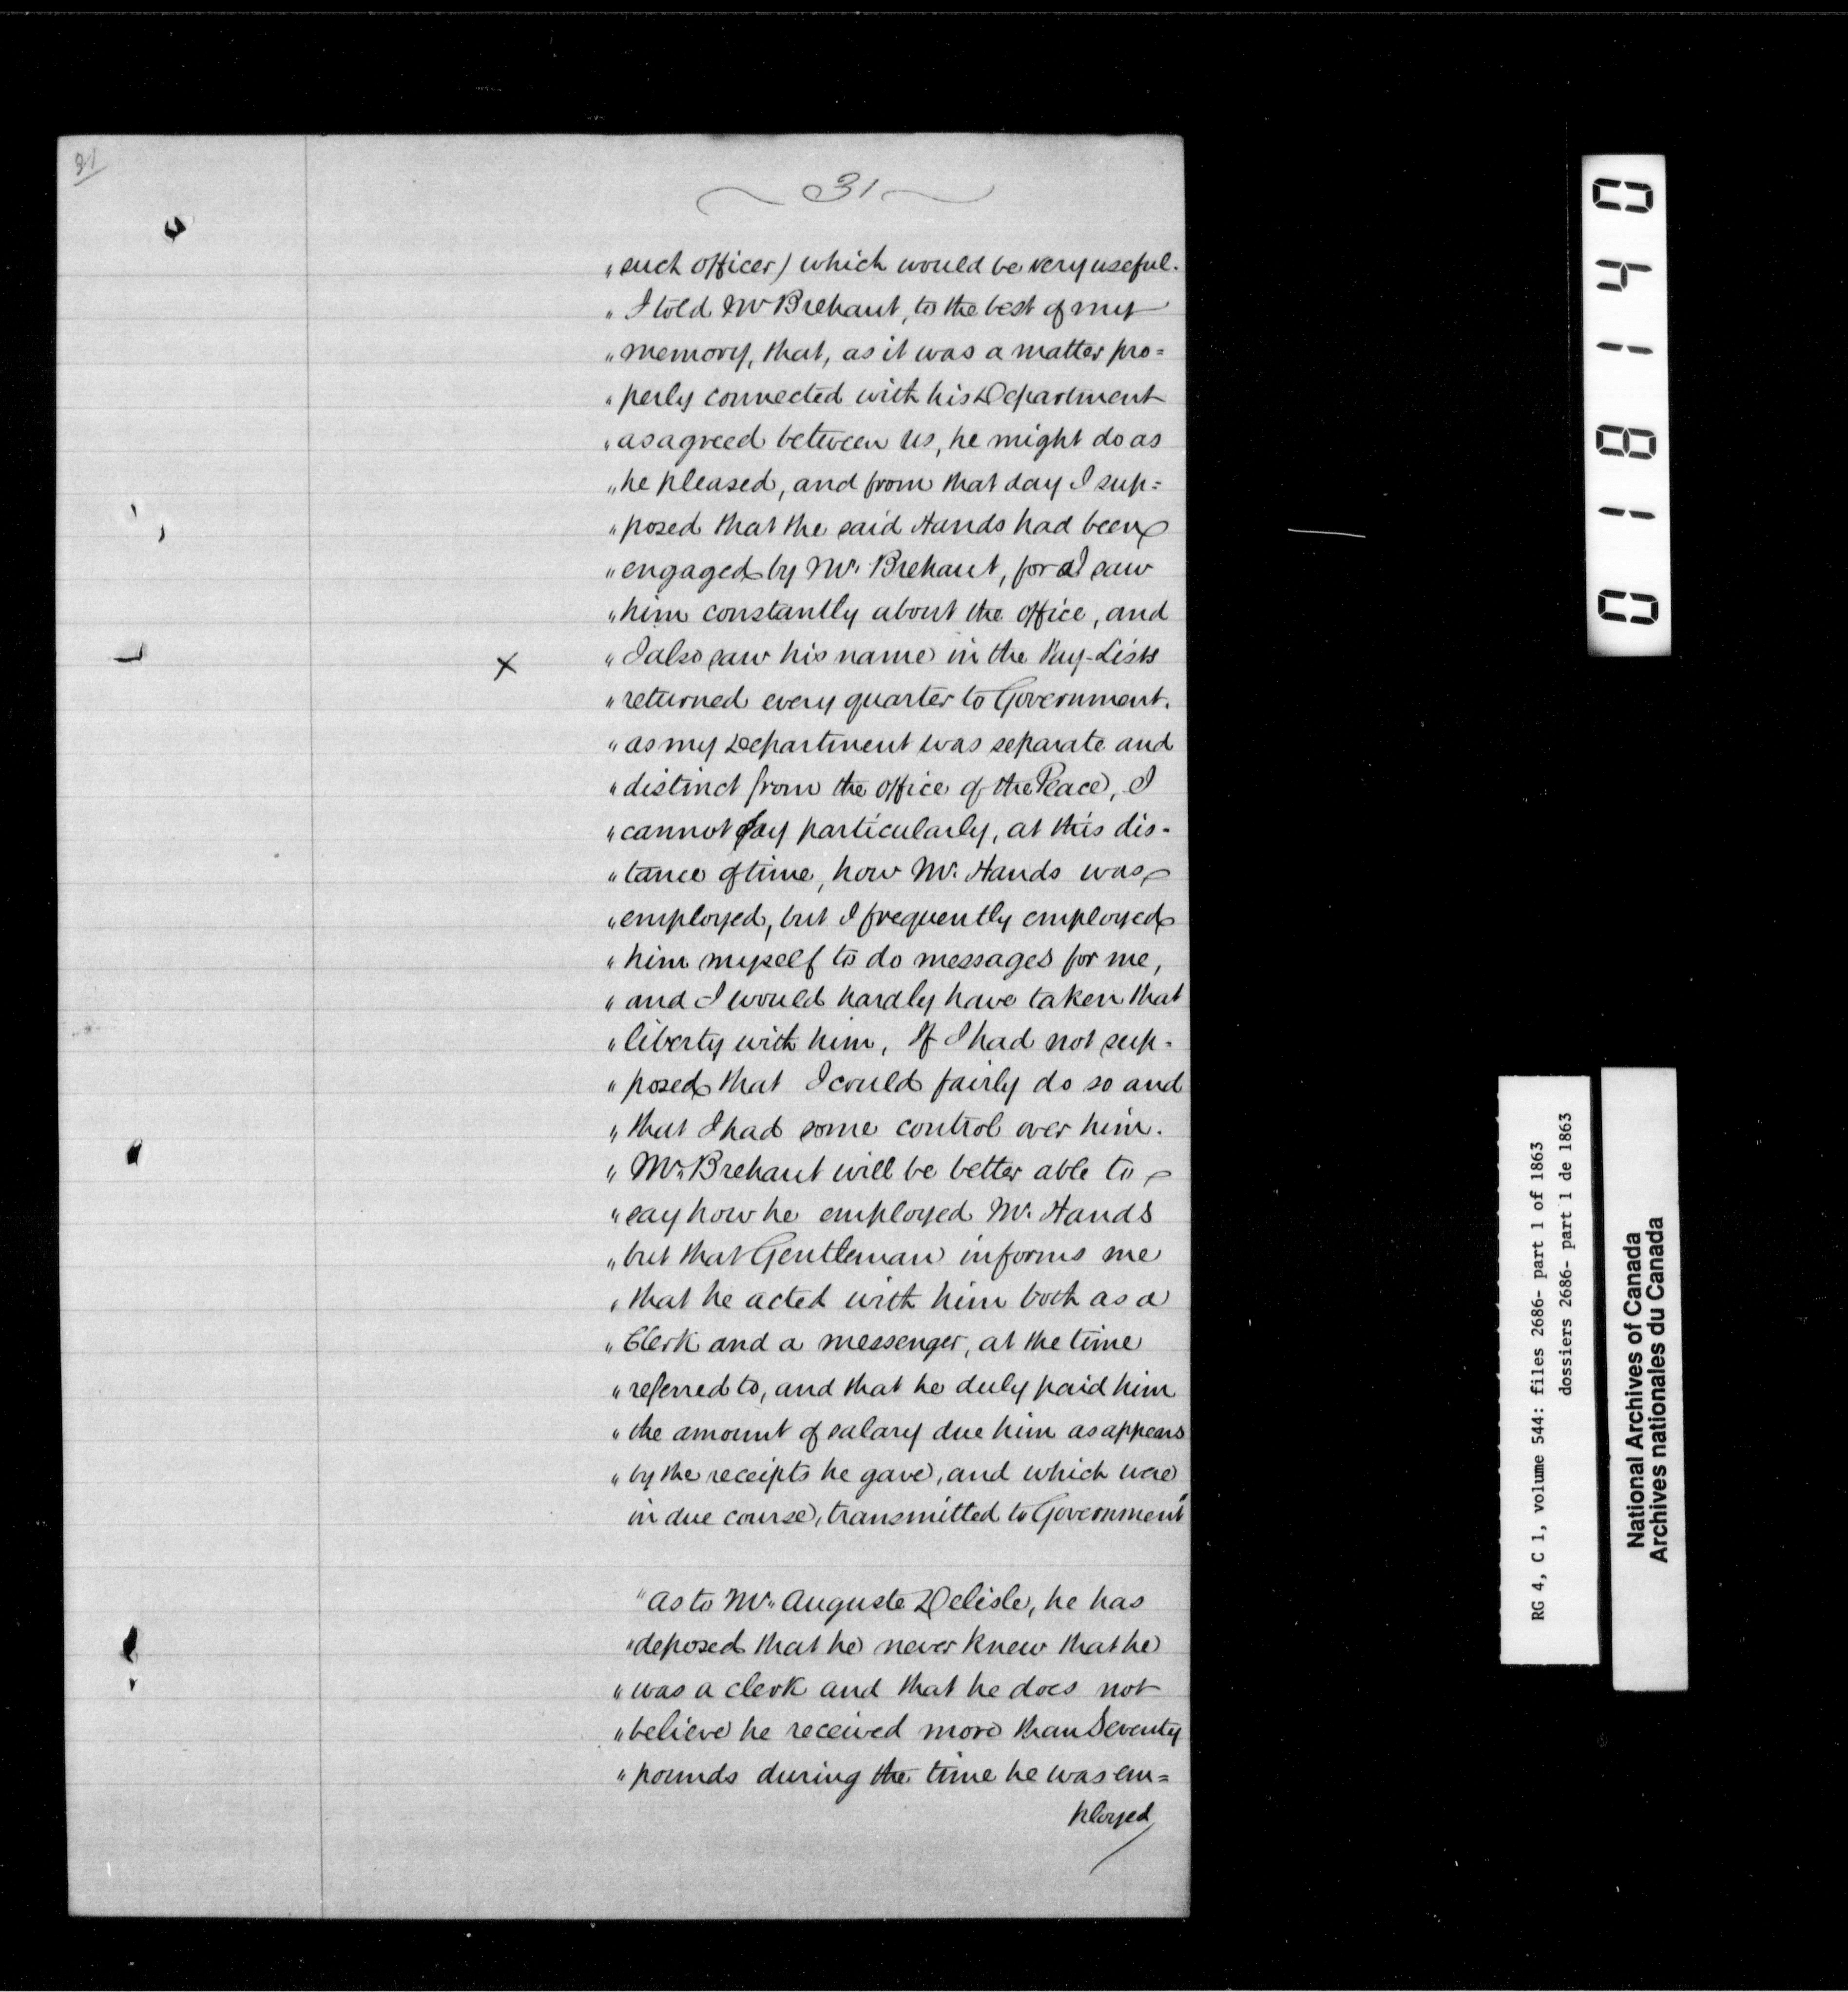 31
31
„ such officer) which would be very useful.
„ I told Mr Brehaut, to the best of my
„ memory, that, as it was a matter pro=
„ perly connected with his Department
„ as agreed between us, he might do as
„ he pleased, and from that day I sup=
„ posed that the said Hands had been
„ engaged by Mr. Brehaut, for I saw
„ him constantly about the office, and
X „ I also saw his name in the Pay-Lists
„ returned every quarter to Government.
„ as my Department was separate and
„ distinct from the office of the Peace, I
„ cannot say particularly, at this dis-
„ tance of time, how Mr. Hands was
„ employed, but I frequently employed
„ him myself to do messages for me,
„ and I would hardly have taken that
„ liberty with him, If I had not sup-
„ posed that I could fairly do so and
„ that I had some control over him.
„ Mr. Brehaut will be better able to
„ say how he employed Mr. Hands
„ but that Gentleman informs me
„ that he acted with him both as a
„ Clerk and a messenger, at the time
„ referred to, and that he duly paid him
„ the amount of salary due him as appears
„ by the receipts he gave, and which were
in due course, transmitted to Government"
"As to Mr. Auguste Delisle, he has
„ deposed that he never knew that he
„ was a clerk and that he does not
„ believe he received more than Seventy
„ pounds during the time he was em=
ployed
018140
RG 4, C 1, volume 544: files 2686- part 1 of 1863
dossiers 2686- part 1 de 1863
National Archives of Canada
Archives nationales du Canada